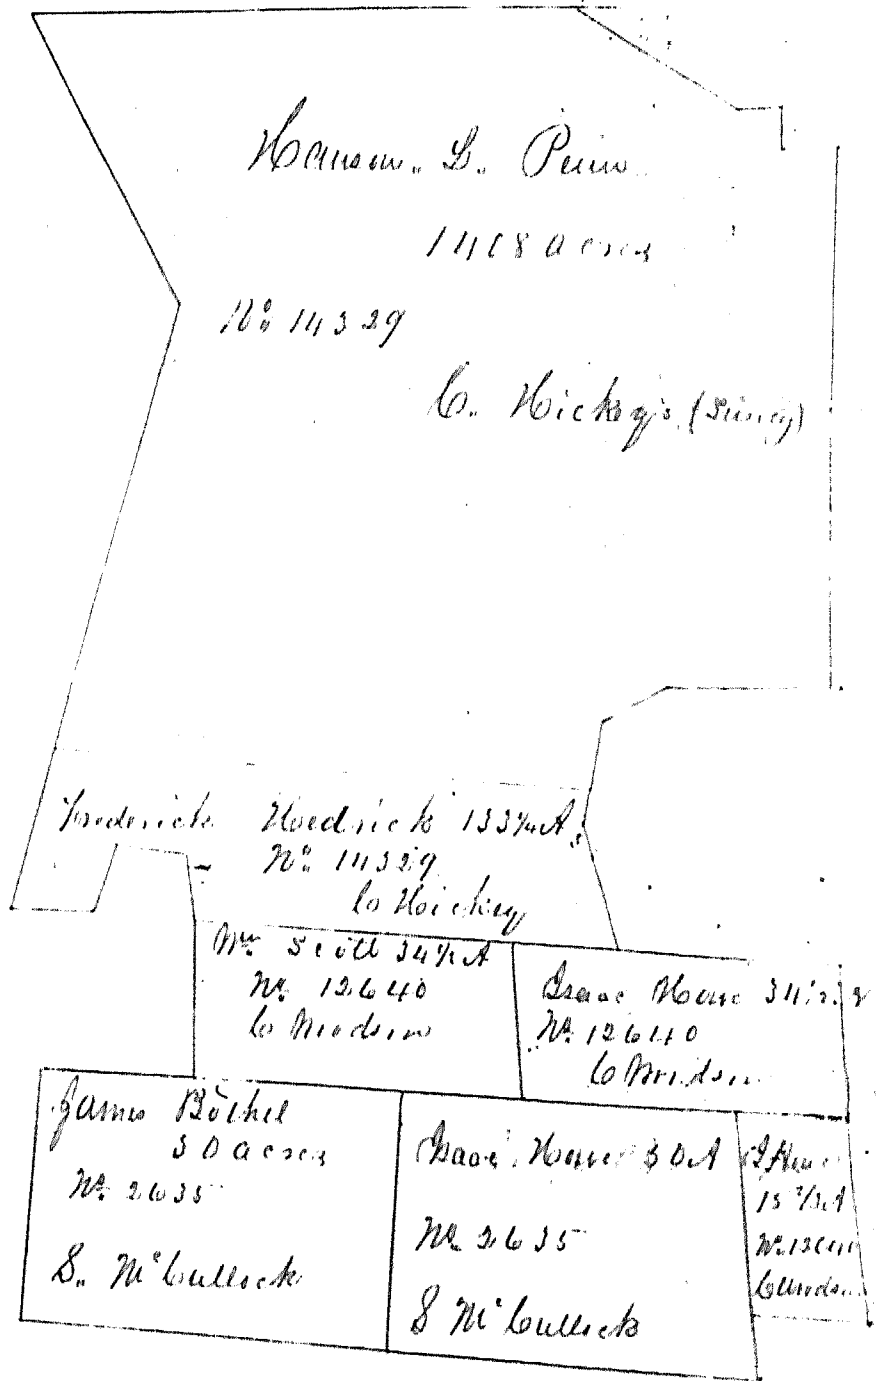 Hanson. L. Penn
1418 acres
No 14329
C. Hickey's (Survey)
Frederick Hedrick 133¼ A
No 14329
C Hickey
Wm Scott 34½ A
No 12640
C Woodson
Isaac Howe
No 12640
C Woodson
James Bethel
50 acres
No 2635
S. McCullock
Isaac Howe 50 A
No 2635
S McCullock
15 ⅔ A
No 12640
C Woodson